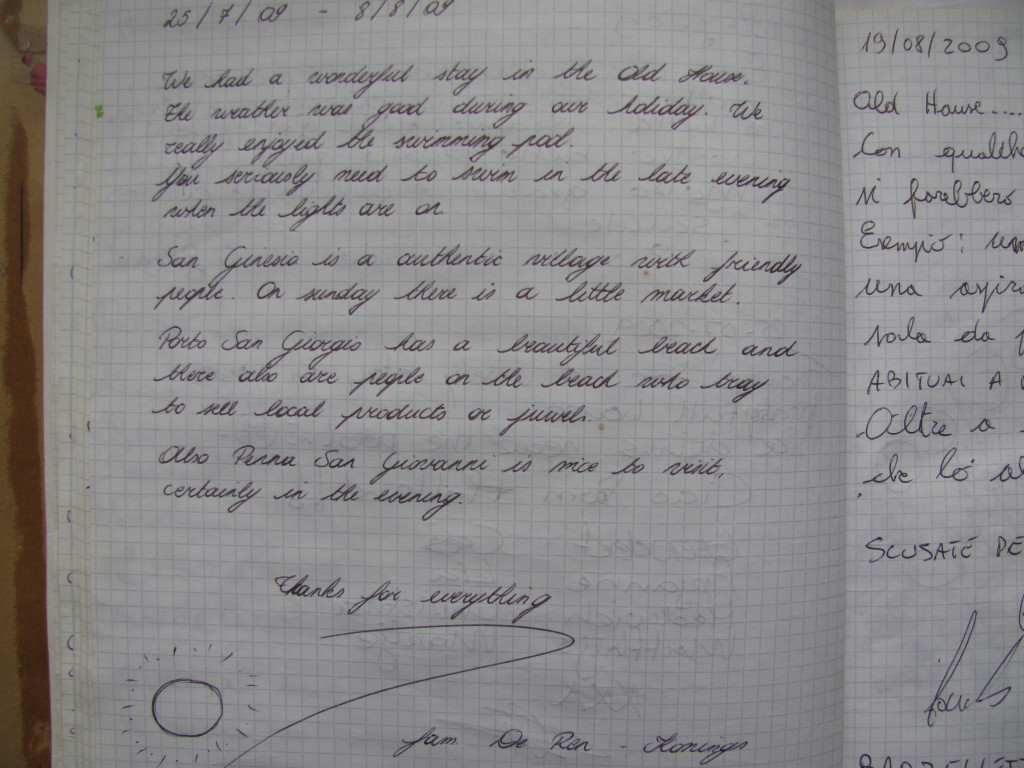 25/7/09 - 8/8/09
We had a wonderful stay in the Old House.
The weather was good during our holiday. We
really enjoyed the swimming pool.
You seriously need to swim in the late evening
when the lights are on.
San Ginesio is a authentic village with friendly
people. On sunday there is a little market.
Porto San Giorgio has a beautiful beach and
there also are people on the beach who
to sell local products or jewels.
Also Penna San Giovanni is nice to visit,
certainly in the evening.
Thanks for everything
fam. De Ron -
19/08/2009
Old House....
Con
N'
Esempio:
una
sola da
ABITUAI A
Oltre a
che
SCUSATE